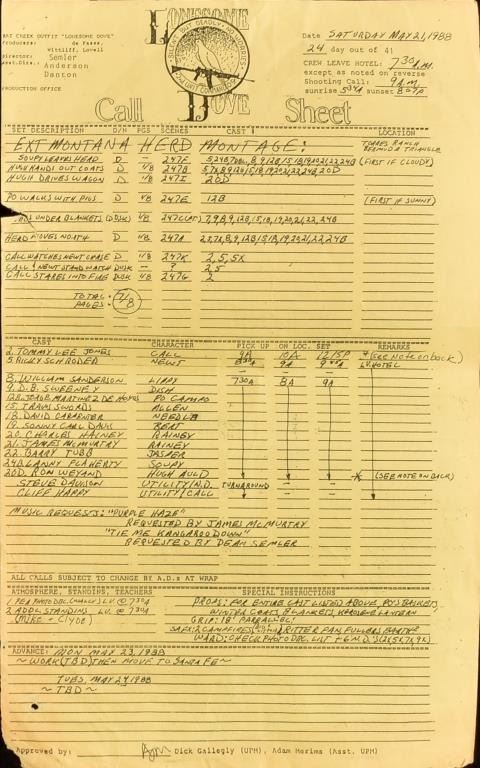 LONESOME DOVE
HAT CREEK OUTFIT "LONESOME DOVE"
Producers: de Passe,
Wittliff, Lovell
Director: Semler
Asst.Dirs.: Anderson
Danton
PRODUCTION OFFICE
Date SATURDAY MAY 21, 1988
24 day out of 41
CREW LEAVE HOTEL: 7:30 A.M.
except as noted on reverse
Shooting Call: 9 A.M.
sunrise sunset
Call Sheet
SET DESCRIPTION D/N PGS SCENES CAST LOCATION
EXT MONTANA HERD MONTAGE: TORRES RANCH
BERMUDA TRIANGLE
SOUPY LEAVES HEAD D — 247F (FIRST IF CLOUDY)
HUGH HANDS OUT COATS D 1/8 247B
HUGH DRIVES WAGON D 1/8 247I 20D
PO WALKS WITH PIGS D 1/8 247E 12B (FIRST IF SUNNY)
UNDER BLANKETS 7,8,9,12B,15,18,19,20,21,22,24B
HERD MOVES NORTH D 1/8 247A
CALL WATCHES NEWT CHASE D 1/8 247K 2, 5, 5X
CALL & NEWT STAND WATCH DUSK — ? 2, 5
CALL STARES INTO FIRE DUSK 1/8 247G 2
TOTAL PAGES - 7/8
CAST CHARACTER PICK UP ON LOC. SET REMARKS
2. TOMMY LEE JONES CALL 9A 10A 12:15P *(see note on back)
5. RICKY SCHRODER NEWT 8:30A 9A LV. HOTEL
8. WILLIAM SANDERSON LIPPY 7:30A 8A 9A
9. D.B. SWEENEY DISH
12B. JORGE MARTINEZ DE HOYOS PO CAMPO
15. TRAVIS SWORDS ALLEN
18. DAVID CARPENTER NEEDLE
19. SONNY CARL DAVIS BERT
20. CHARLES HAINEY RAINEY
21. JAMES McMURTRY RAINEY
22. BARRY TUBB JASPER
24B. LANNY FLAHERTY SOUPY
20D. RON WEYAND HUGH AULD * (SEE NOTE ON BACK)
STEVE DAVISON UTILITY/N.D. TURNAROUND — —
CLIFF HAPPY UTILITY/CALL — — —
MUSIC REQUESTS: "PURPLE HAZE"
REQUESTED BY JAMES McMURTRY
"TIE ME KANGAROO DOWN"
REQUESTED BY DEAN SEMLER
ALL CALLS SUBJECT TO CHANGE BY A.D.s AT WRAP
ATMOSPHERE, STANDINS, TEACHERS SPECIAL INSTRUCTIONS
2 ADDL STANDINS LV. @ 730A
(MIKE + CLYDE)
PROPS: FOR ENTIRE CAST LISTED ABOVE, PO'S BASKETS,
WINTER COATS, BLANKETS, KEROSENE LANTERN
GRIP: 18' PARALLEL!
SPFX: 2 CAMPFIRES, RITTER FAN, FULLERS EARTH
WARD: CHECK PHOTO DBL LIST
ADVANCE: MON MAY 23, 1988
~ WORK (TBD) THEN MOVE TO SANTA FE ~
TUES, MAY 24, 1988
~ TBD ~
Approved by: Dick Gallegly (UPM), Adam Merims (Asst. UPM)